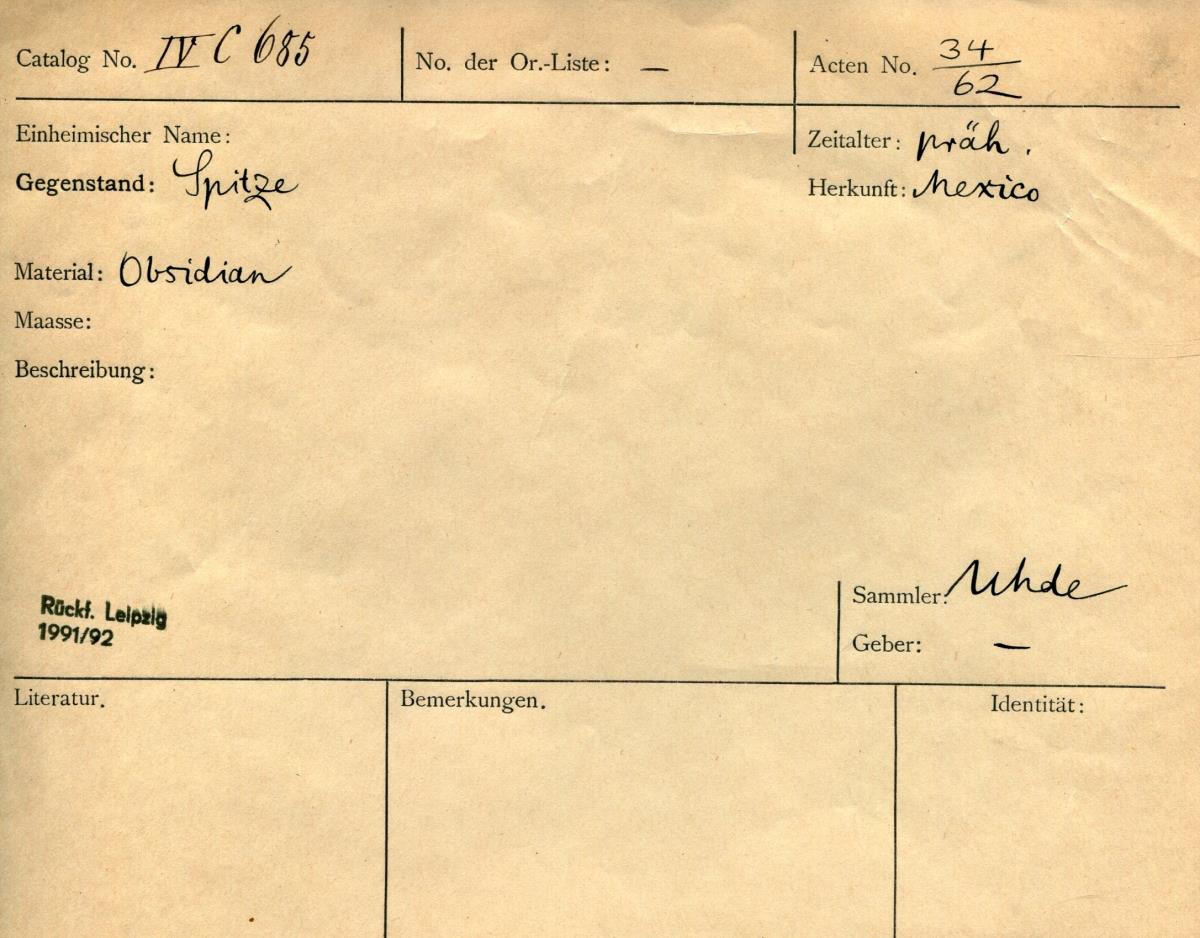 Catalog No. IV C 685
No. der Or.-Liste: —
Acten No. 34/62
Einheimischer Name:
Zeitalter: präh.
Gegenstand: Spitze
Herkunft: Mexico
Material: Obsidian
Maasse:
Beschreibung:
Rückf. Leipzig
1991/92
Sammler: Uhde
Geber: —
Literatur.
Bemerkungen.
Identität: